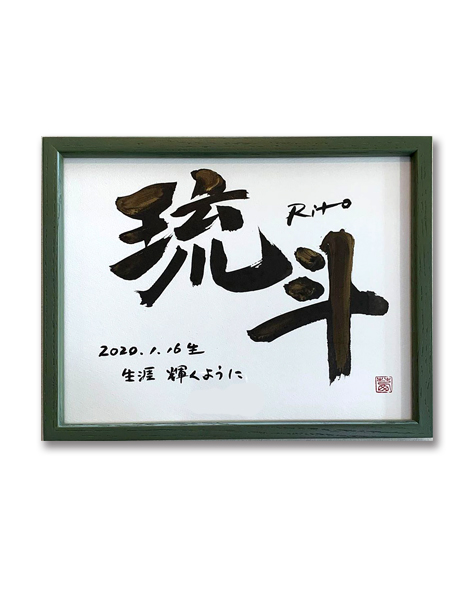 琉斗
Rito
2020.1.16生
生涯 輝くように